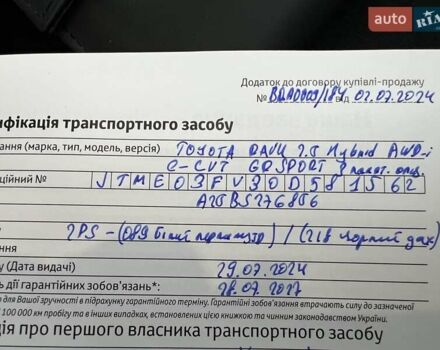 auto RIA
Додаток до договору купівлі-продажу
№ від 02.07.2024
ифікація транспортного засобу
ання (марка, тип, модель, версія) TOYOTA RAV4 2.5 Hybrid AWD-i
e-CVT GR SPORT
ційний № JTME03FV30D581562
A25BS276856
2PS - (089 білий перламутр) / (218 чорний дах)
ення
у (Дата видачі) 29.07.2024
ь дії гарантійних зобов'язань*: 28.07.2027
о для Вашої зручності в підрахунку гарантійного терміну. Гарантійні зобов'язання втрачають силу до зазначеної
100 000 км пробігу та в інших випадках, встановлених цією книжкою та чинним законодавством України.
ція про першого власника транспортного засобу